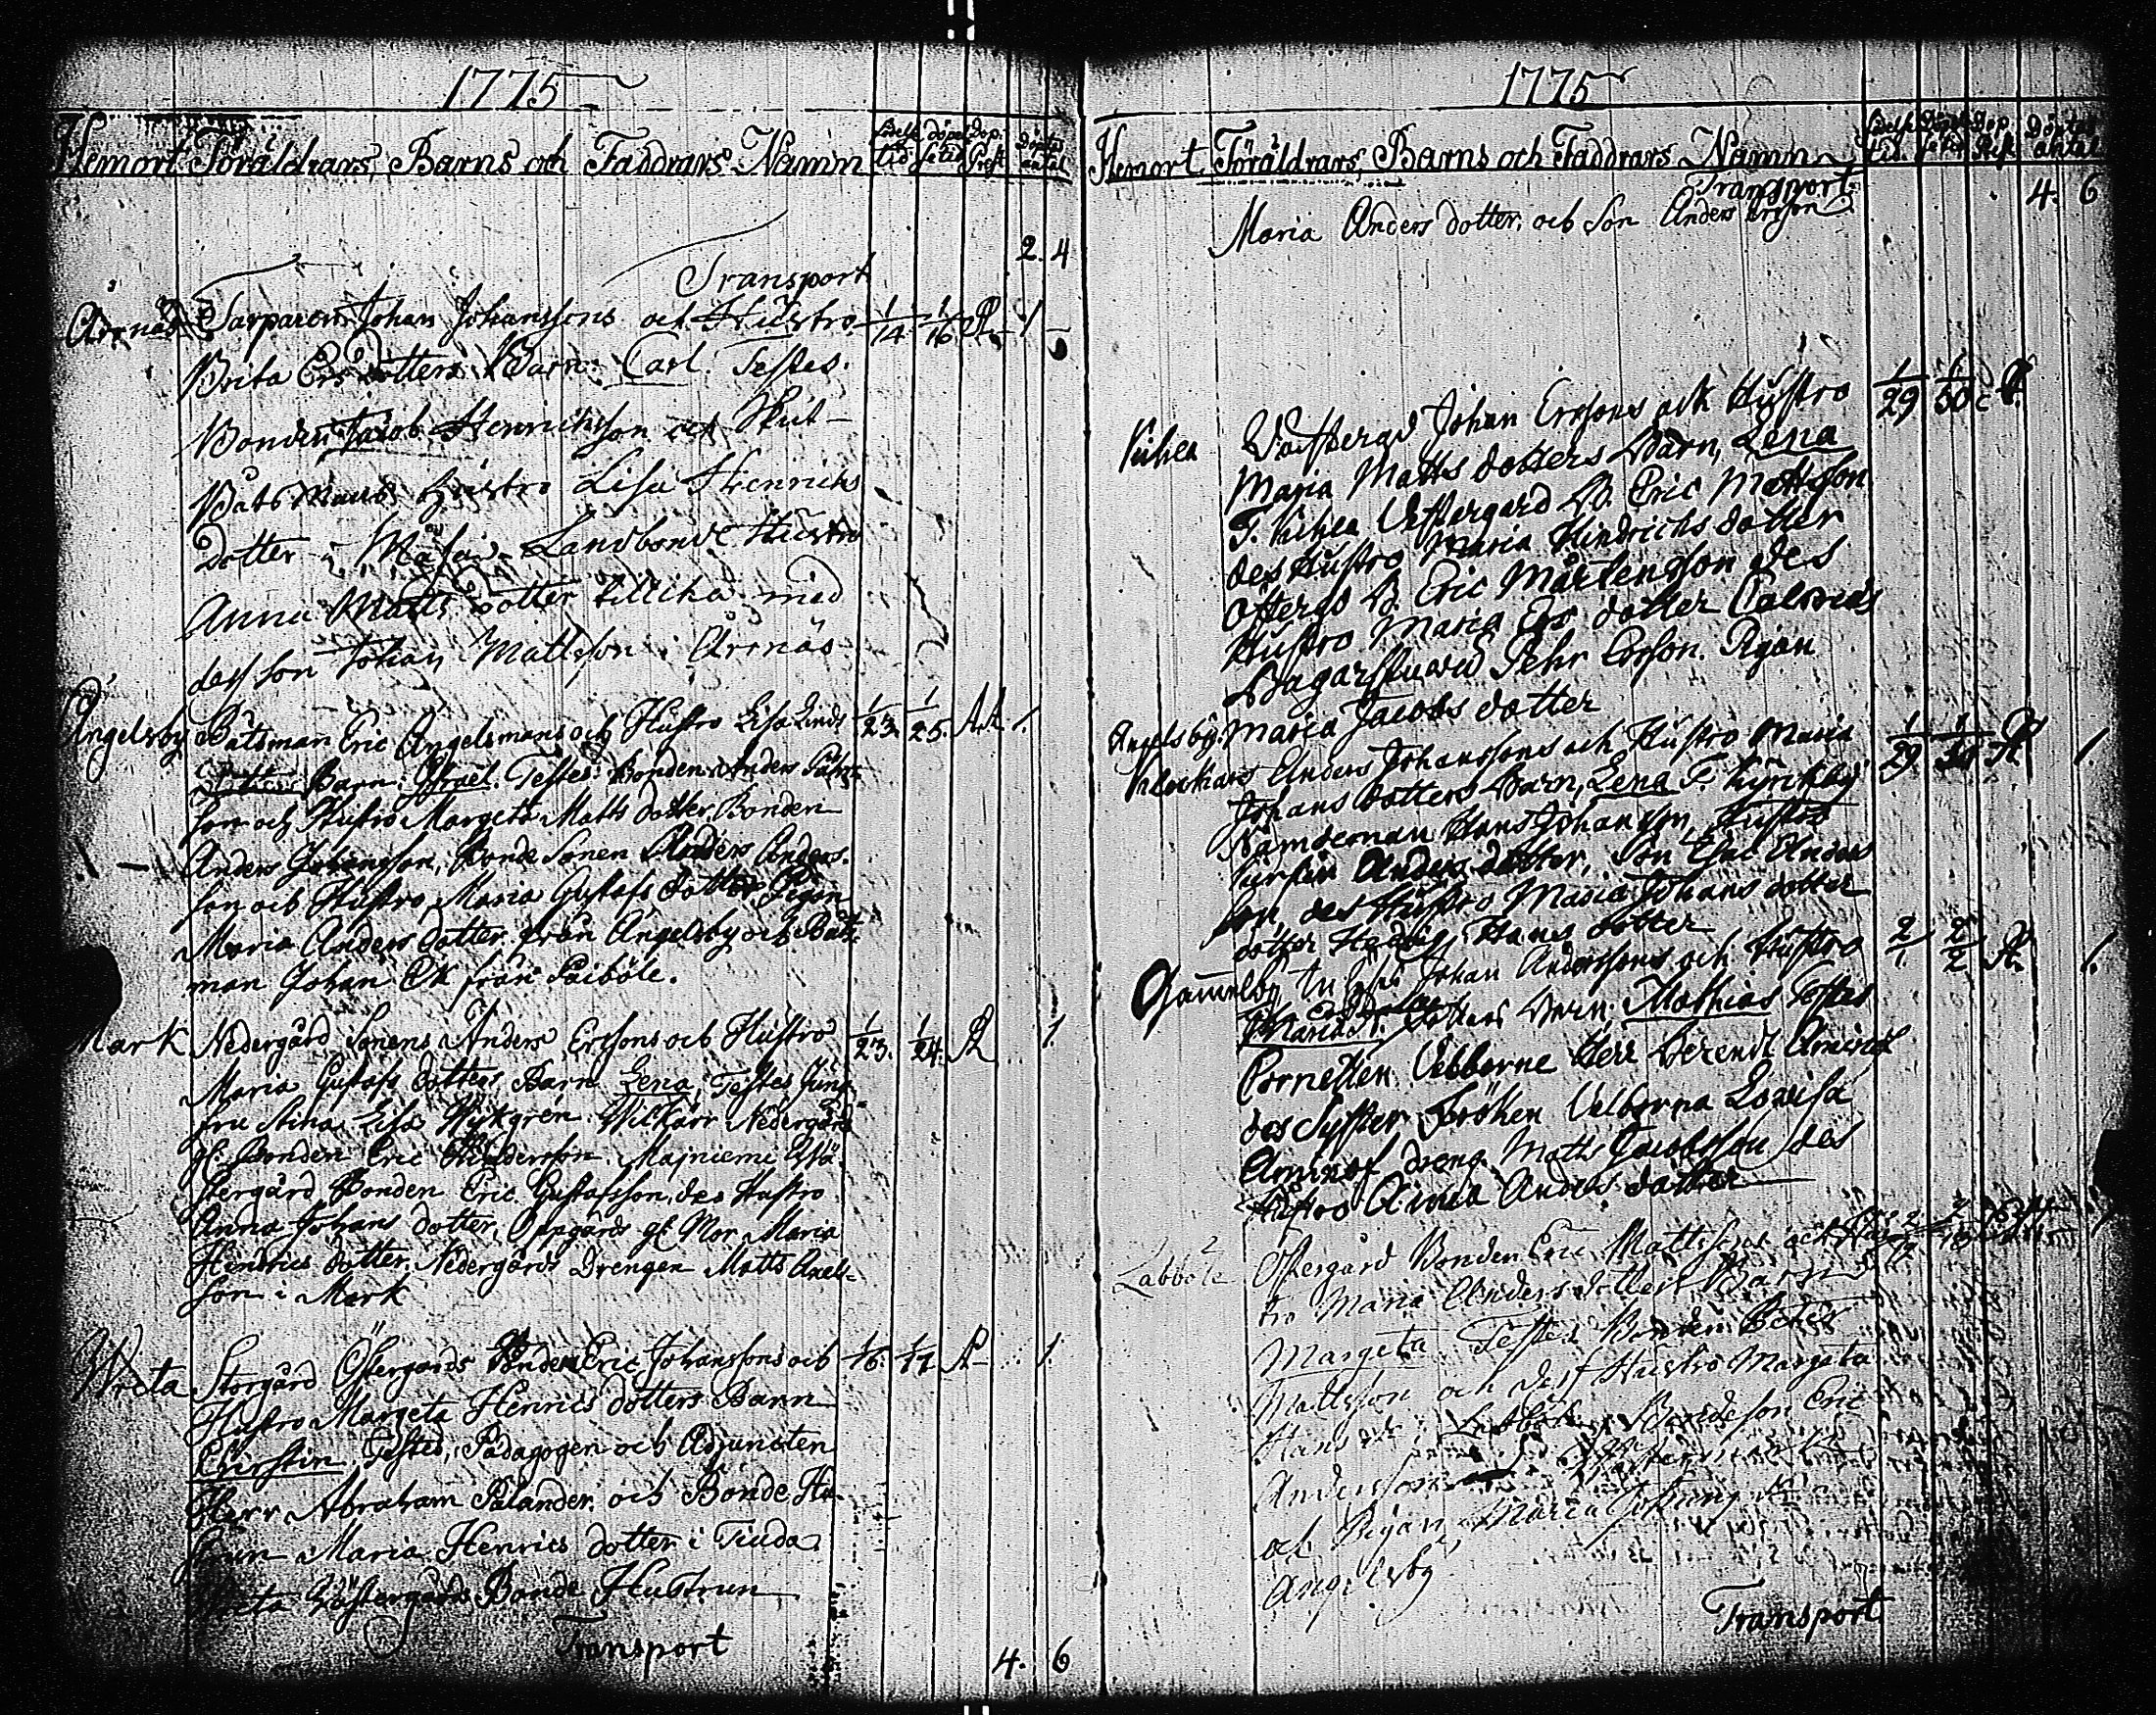 1775
Hemort Föräldrars, Barns och Faddrars Namn födelse tid döpelse tid Dop. Prest Döptes antal
2. 4
Transport
Årnäs Torparen Johan Johanssons och Hustro 1/14 1/16 R. 1
Brita Ers dotters Barn: Carl. Testes.
Bonden Jacob Henrichsson och Skut-
Båtsmans Hustro Lisa Henrichs
dotter i Landbonde Hustro
Anna Matts dotter tillika med
dess son Johan Mattsson i Årnäs
Ängelsby Båtsman Eric Ängelsmans och Hustro Lisa Linds 1/23. 1/25. 1.
dotters Barn: Israel. Testes: Bonden Anders
son och Hustro Margeta Matts dotter, Bonden
Anders Johansson, Bonde Sonen Anders Anders-
son och Hustro Maria Gustafs dotter, Pigan
Maria Anders dotter från Ängelsby och Båts-
man Johan Ek från Paiböle.
Mark Nedergård Sonens Anders Ersons och Hustro 1/23. 1/24. R 1.
Maria Gustafs dotters Barn Lena, Testes Jung-
fru Stina Lisa Nykgren Wilkärr Nedergårds
gl. Bonden Eric Hindersson. Majniemi Wä-
stergård Bonden Eric Gustafsson, des Hustro
Anna Johans dotter, Oppgårds gl. Mor Maria
Hindrics dotter, Nedergårds Drengen Matts Axels-
son i Mark
Wreta Storgård Östergårds Bonden Eric Johanssons och 1/16. 1/17 R 1.
Hustro Margeta Henrics dotters Barn
Chirstin, Testes, Pædagogen och Adjuncten
Herr Abraham Palander och Bonde Hu-
strun Maria Henrics dotter i Tiuda
Wreta Wästergårds Bonde Hustrun
Transport
4. 6
1775
Hemort Föräldrars, Barns och Faddrars Namn födelse tid Dop. Prest Döptes antal
Transport 4. 6
Maria Anders dotter, och Son Anders Ersson
Västergård Johan Erssons och Hustro 1/29 1/30
Maria Matts dotters Barn, Lena
T. Västergård B. Eric Mattsson
des Hustro Maria Hindrichs dotter
Östergs B. Eric Mårtensson des
Hustro Maria Ers dotter
Pehr Ersson. Pigan
Maria Jacobs dotter
Ängelsby Klockars Anders Johanssons och Hustro Maria 1/29 R 1.
Johans dotters Barn, Lena T. Kyrckby
Nämdeman Hans Johansson, Hustro
Kirstin Anders dotter, Son Eric Anders
son, des Hustro Maria Johans dotter
dotter Hedvig Hans dotter
Gammelby Johan Anderssons och Hustro 2/1 2/2 R. 1.
Maria dotters Barn. Mathias Testes
Cornetten Velborne Herr Berendt Aminof
des Syster Fröken Velborna Lovisa
Aminof dreng Matts Jacobsson des
Hustro Anna Anders dotter
Labböle Östergård Bonden Eric Mattssons och Hus-
tro Maria Anders dotters Barn
Margeta Testes Bonden Petter
Mattsson och dess Hustro Margeta
Hans dr. i Labböle, Bondeson Eric
Andersson
och Pigan Maria
Ängelsby
Transport